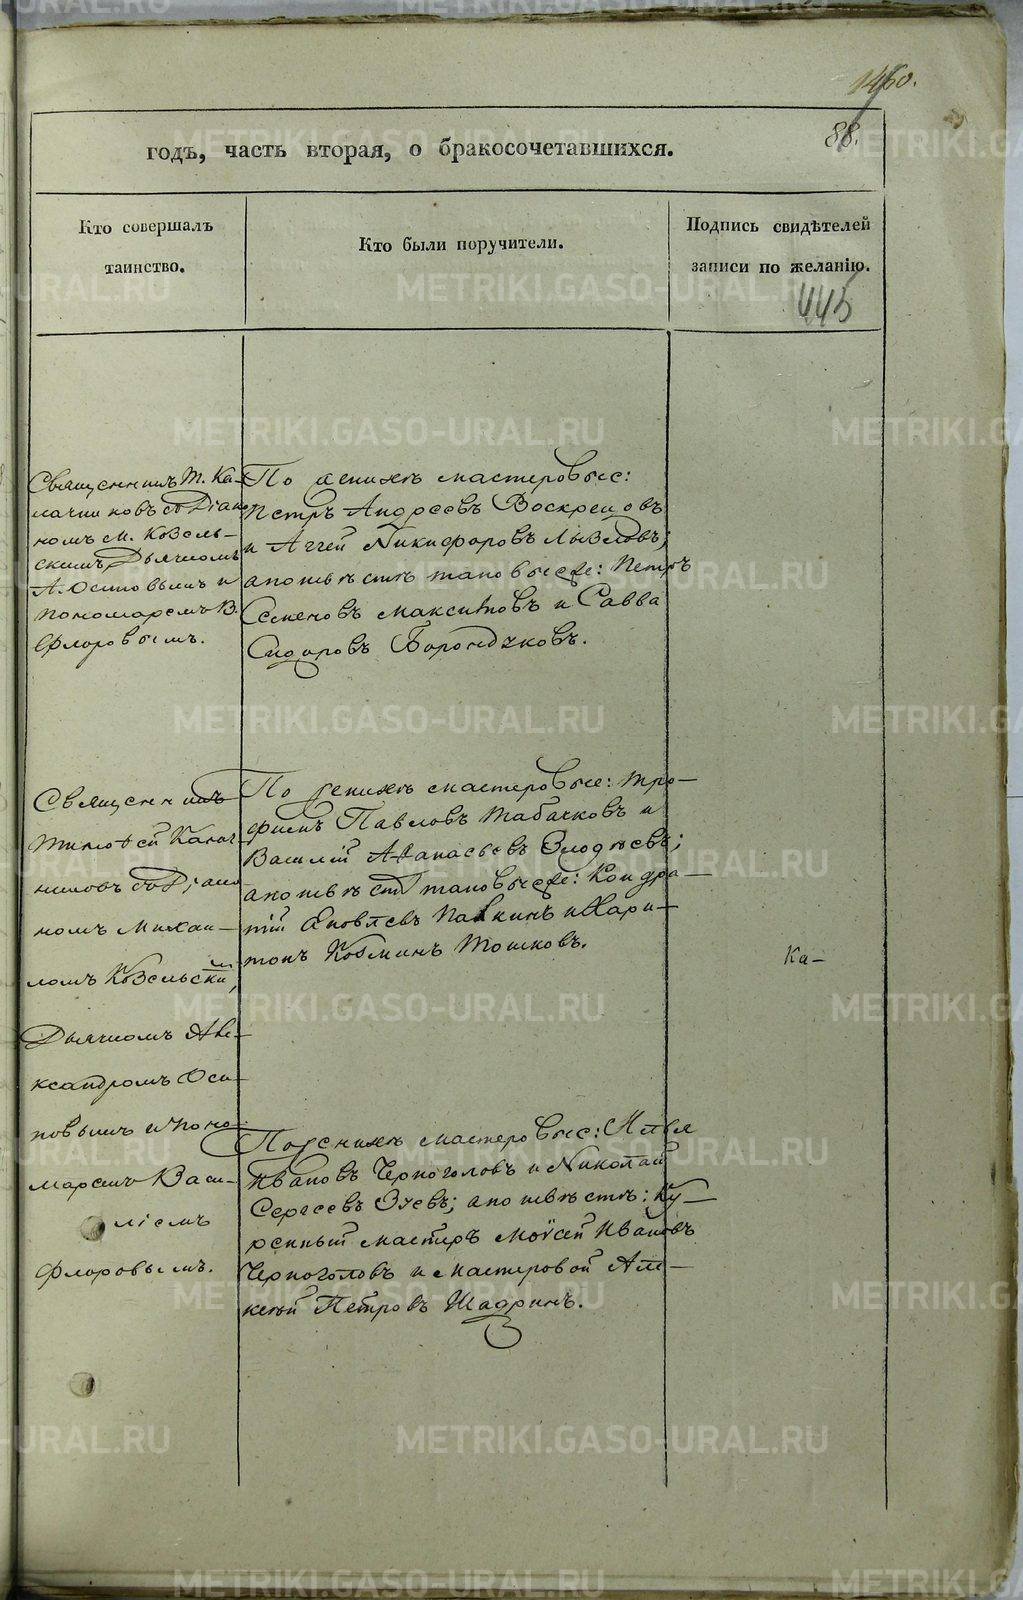 1460.
88.
годъ, часть вторая, о бракосочетавшихся.
Кто совершалъ
таинство.
Кто были поручители.
Подпись свидѣтелей
записи по желанію.
445
Священникъ Т. Ка-
лачниковъ съ Діако
номъ М. Козель-
скимъ, Дьячкомъ
А. Осиповымъ и
пономаремъ В.
Флоровымъ.
По женихѣ мастеровые:
Петръ Андреевъ Воскрецовъ
и Аггей Никифоровъ
а по невѣстѣ таковые же: Петръ
Семеновъ Максимовъ и Савва
Сидоровъ
Священникъ
Тимофей Калач-
никовъ съ Діако
номъ Михаи-
ломъ Козельскимъ,
Дьячкомъ Але-
ксандромъ Оси-
повымъ и поно-
маремъ Васи-
ліемъ
Флоровымъ.
По женихѣ мастеровые: Тро-
фимъ Павловъ Табачковъ и
Василій Афанасьевъ
а по невѣстѣ таковые же: Кондра-
тій Яковлевъ и Хари-
тонъ Козминъ Тошковъ.
Ка-
По женихѣ мастеровые: Илья
Ивановъ Черноголовъ и Николай
Сергеевъ Зуевъ; а по невѣстѣ: Ку-
ренный мастеръ Моѵсей Ивановъ
Черноголовъ и мастеровой Але-
ксѣй Петровъ Шадринъ.
METRIKI.GASO-URAL.RU